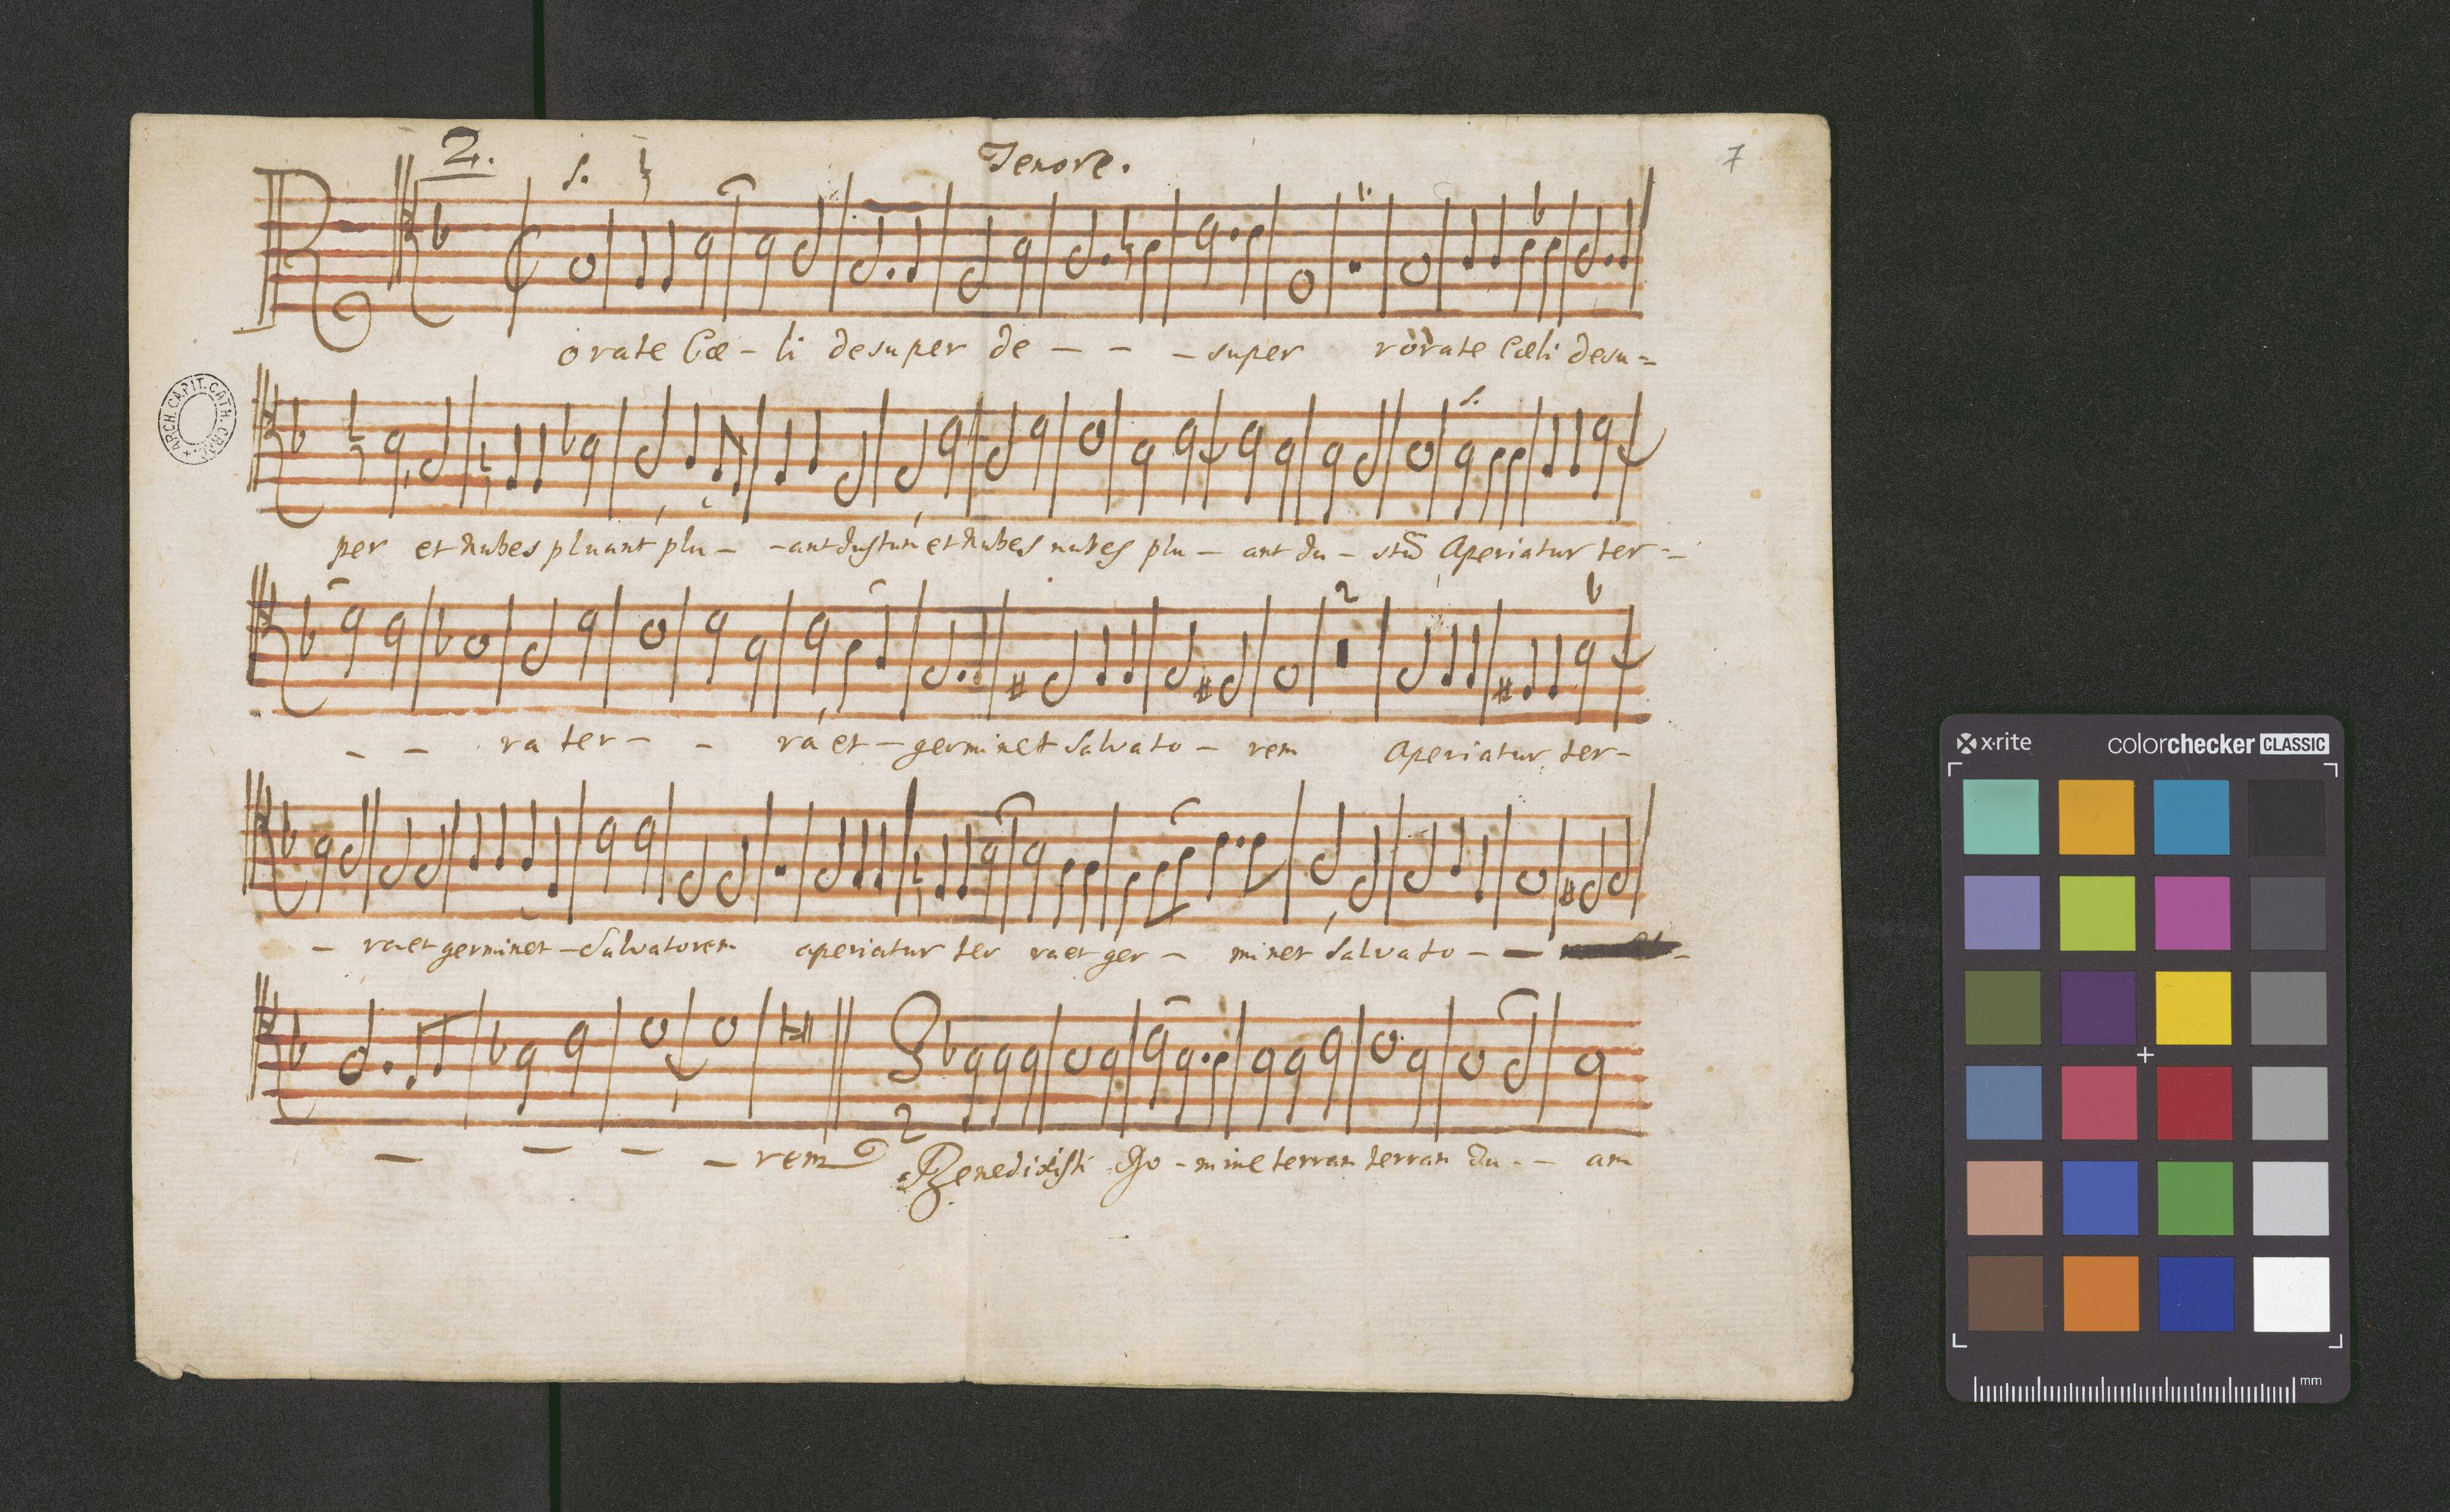 2. Tenore. 7
S.
R orate Cœ - li desuper de - - - super rorate Cœli desu =
S.
ARCH. CAPIT. CATH.
per et Nubes pluant plu - - ant Justum et Nubes nubes plu - ant Ju - stũ Aperiatur ter - -
2
- - ra ter - - ra et - germinet Salvato - rem Aperiatur ter -
- ra et germinet - Salvatorem aperiatur ter ra et ger - minet Salvato - - -
- - - - rem
2 Benedixisti Do - mine terram terram tu - - am
x·rite colorchecker CLASSIC
mm